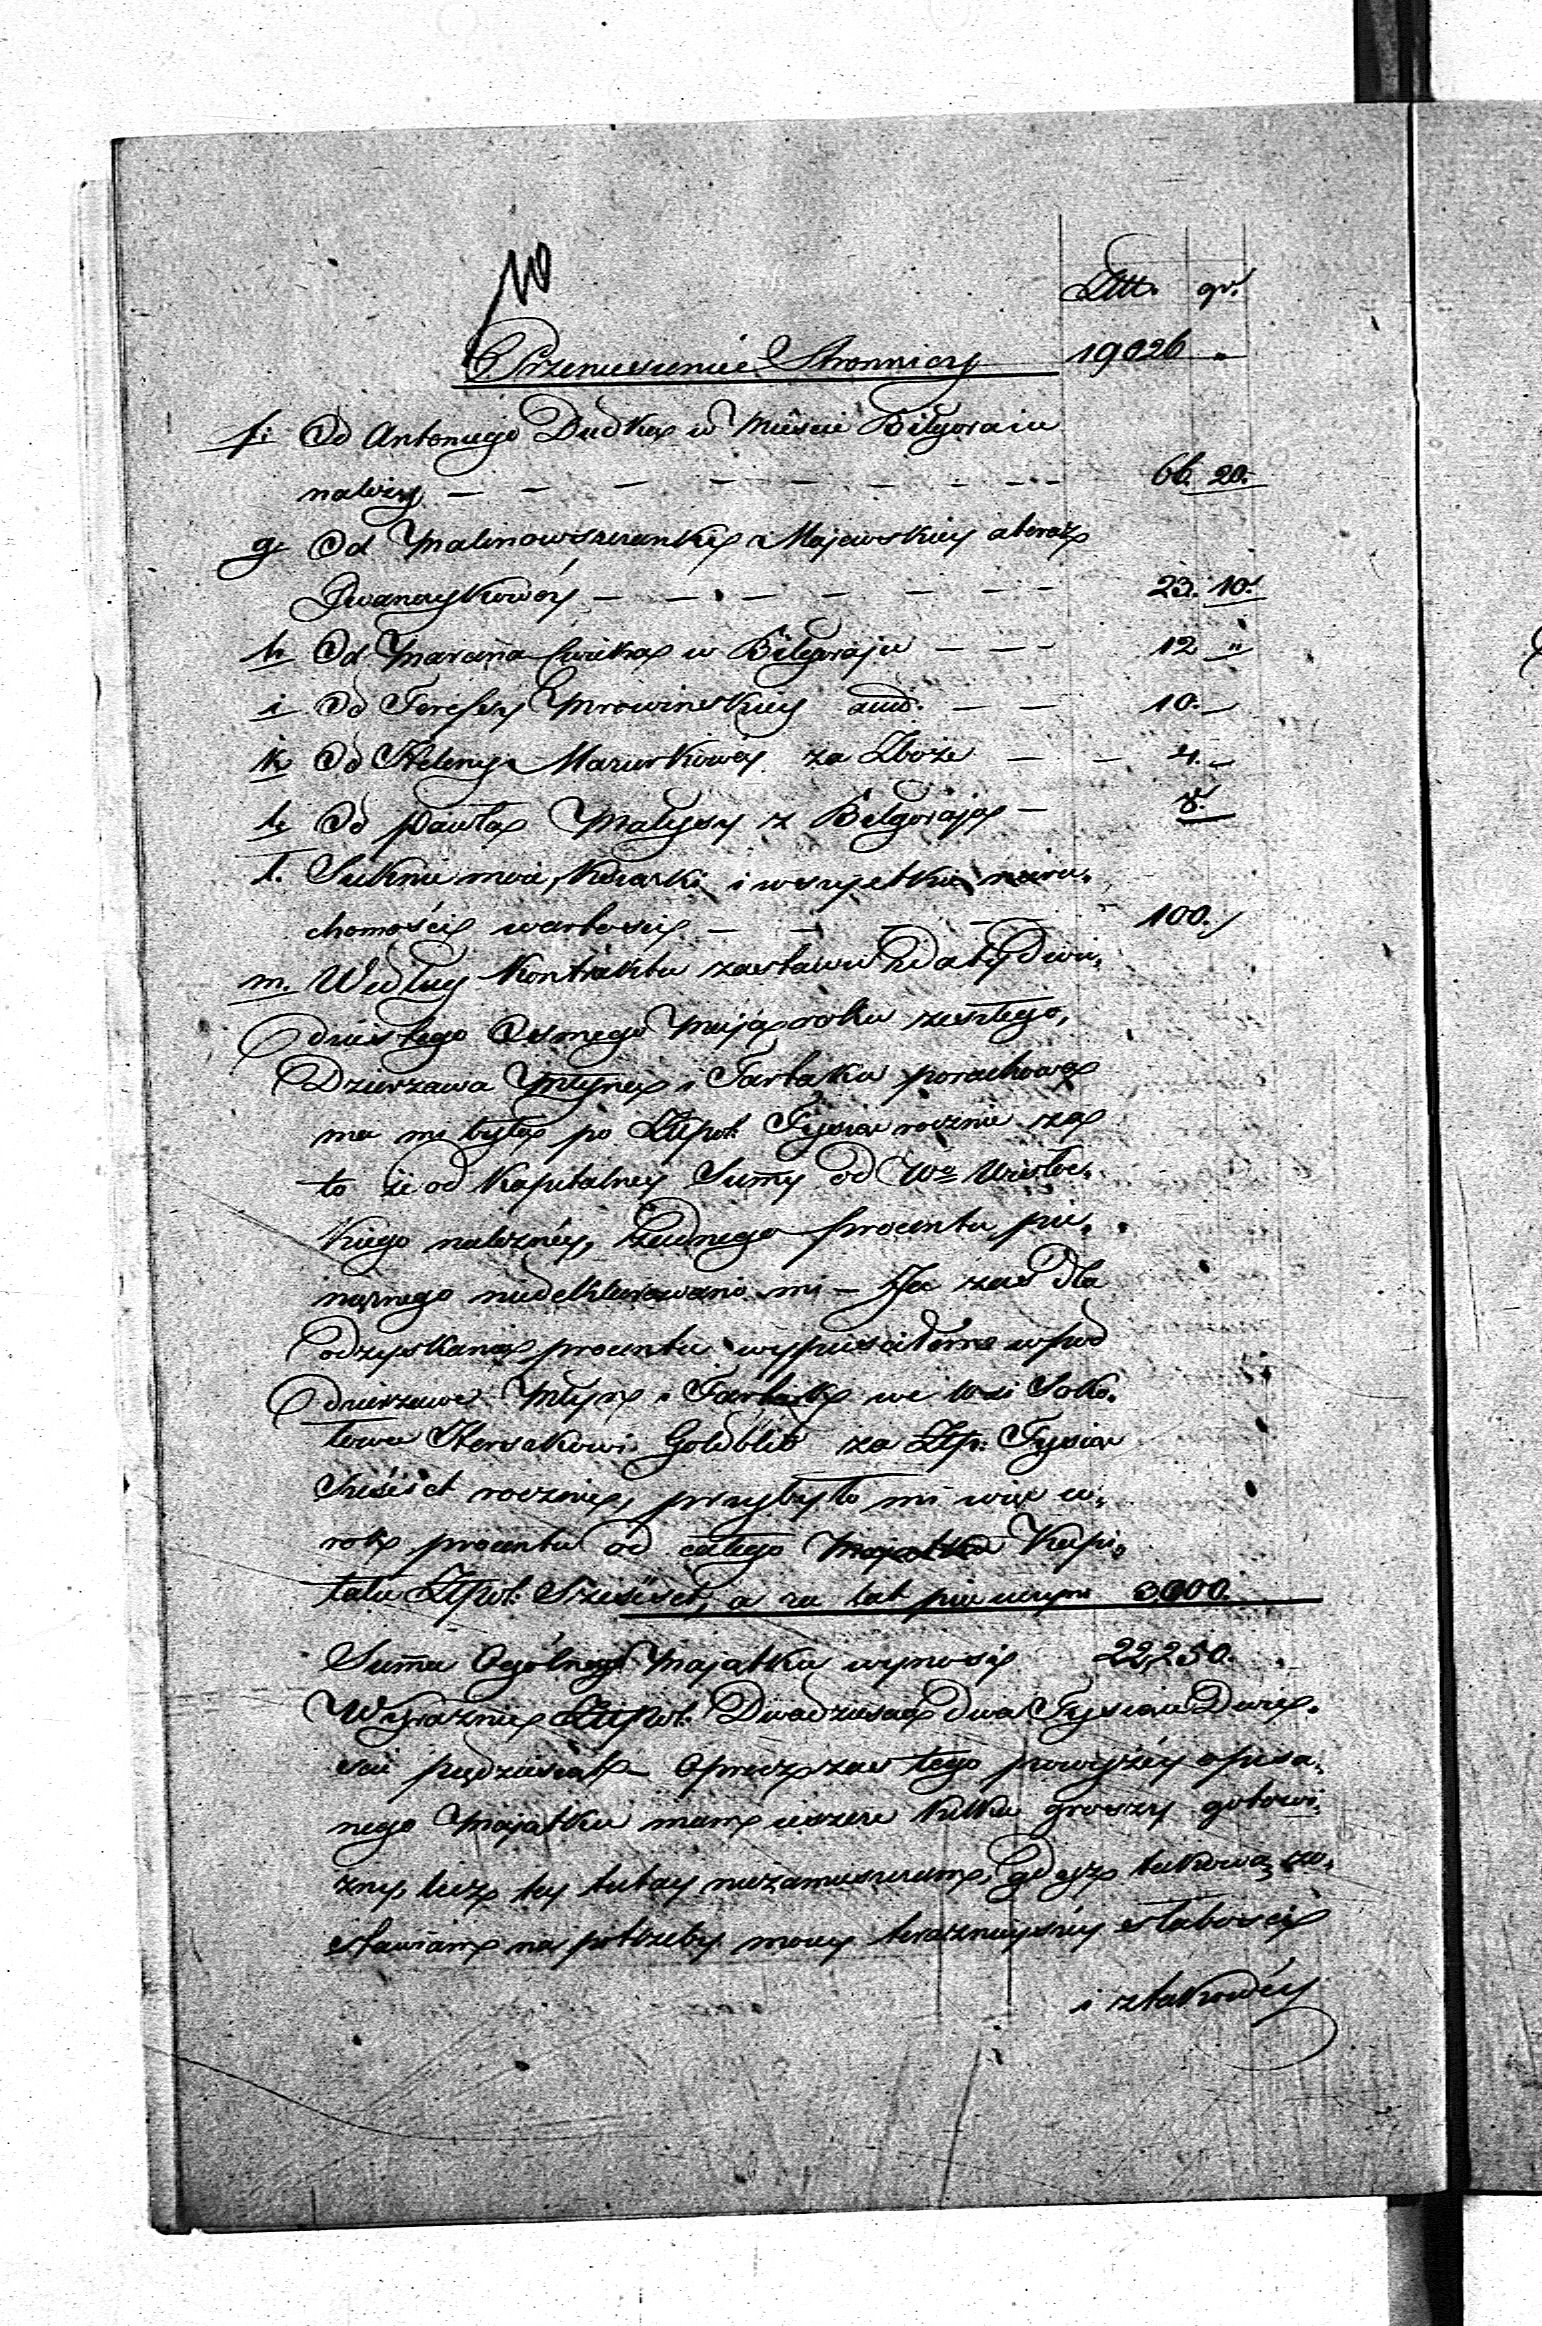 10
Złt. gr.
Przeniesienie Stronnicy 19026 "
f: Od Antoniego Dudka w Mieście Biłgoraiu
należy — — — — — — — — 66. 20.
g Od Malinowszczanki Majewskiey a teraz
Iwanczykowey — — — — — — — 23. 10.
h. Od Marcina Cwieka w Biłgoraju — — — 12 "
i Od Teressy Mrowinskiey — — 10. —
k Od Heleny Mazurkowey za Zboże — — 4. —
ł: Od Pawła Małyszy z Biłgoraja — 8.
I. Suknie moie, Książki i wszystkie nieru,
chomości wartości — — — — 100.
m. Według Kontraktu zastawu z daty Dwu,
dziestego Osmego Maja roku zeszłego,
Dzierzawa Młyna i Tartaku porachowa
na mi była po Złłpol: Tysiąc rocznie za
to że od Kapitalney Summy od Wo Wisłoc,
kiego należney, żadnego procentu pie,
niężnego niedeklarowano mi — Ja zaś dla
odzyskania procentu wypuściłem w pod
dzierzawę Młyn i Tartak we Wsi Soko,
łowce Herszkowi Goldblit za Złp: Tysiąc
Sześćset rocznie, przybyło mi więc w,
rok procentu od całego Majątku Kapi,
tału Złłpol: Sześćset, a za lat pięć czyni 3000.
Summa Ogólnego Majątku wynosi 22,250.
Wyraźnie Złłpol: Dwadzieścia dwa Tysiące Dwie,
ście pięćdziesiąt — Oprócz zaś tego powyżey opisa,
nego Majątku mam ieszcze kilka groszy gotowi,
zny, lecz tey tutay niezamieszczam, gdyż takową zo,
stawiam na potrzeby moiey teraznieyszey słabości
i ztakowéy